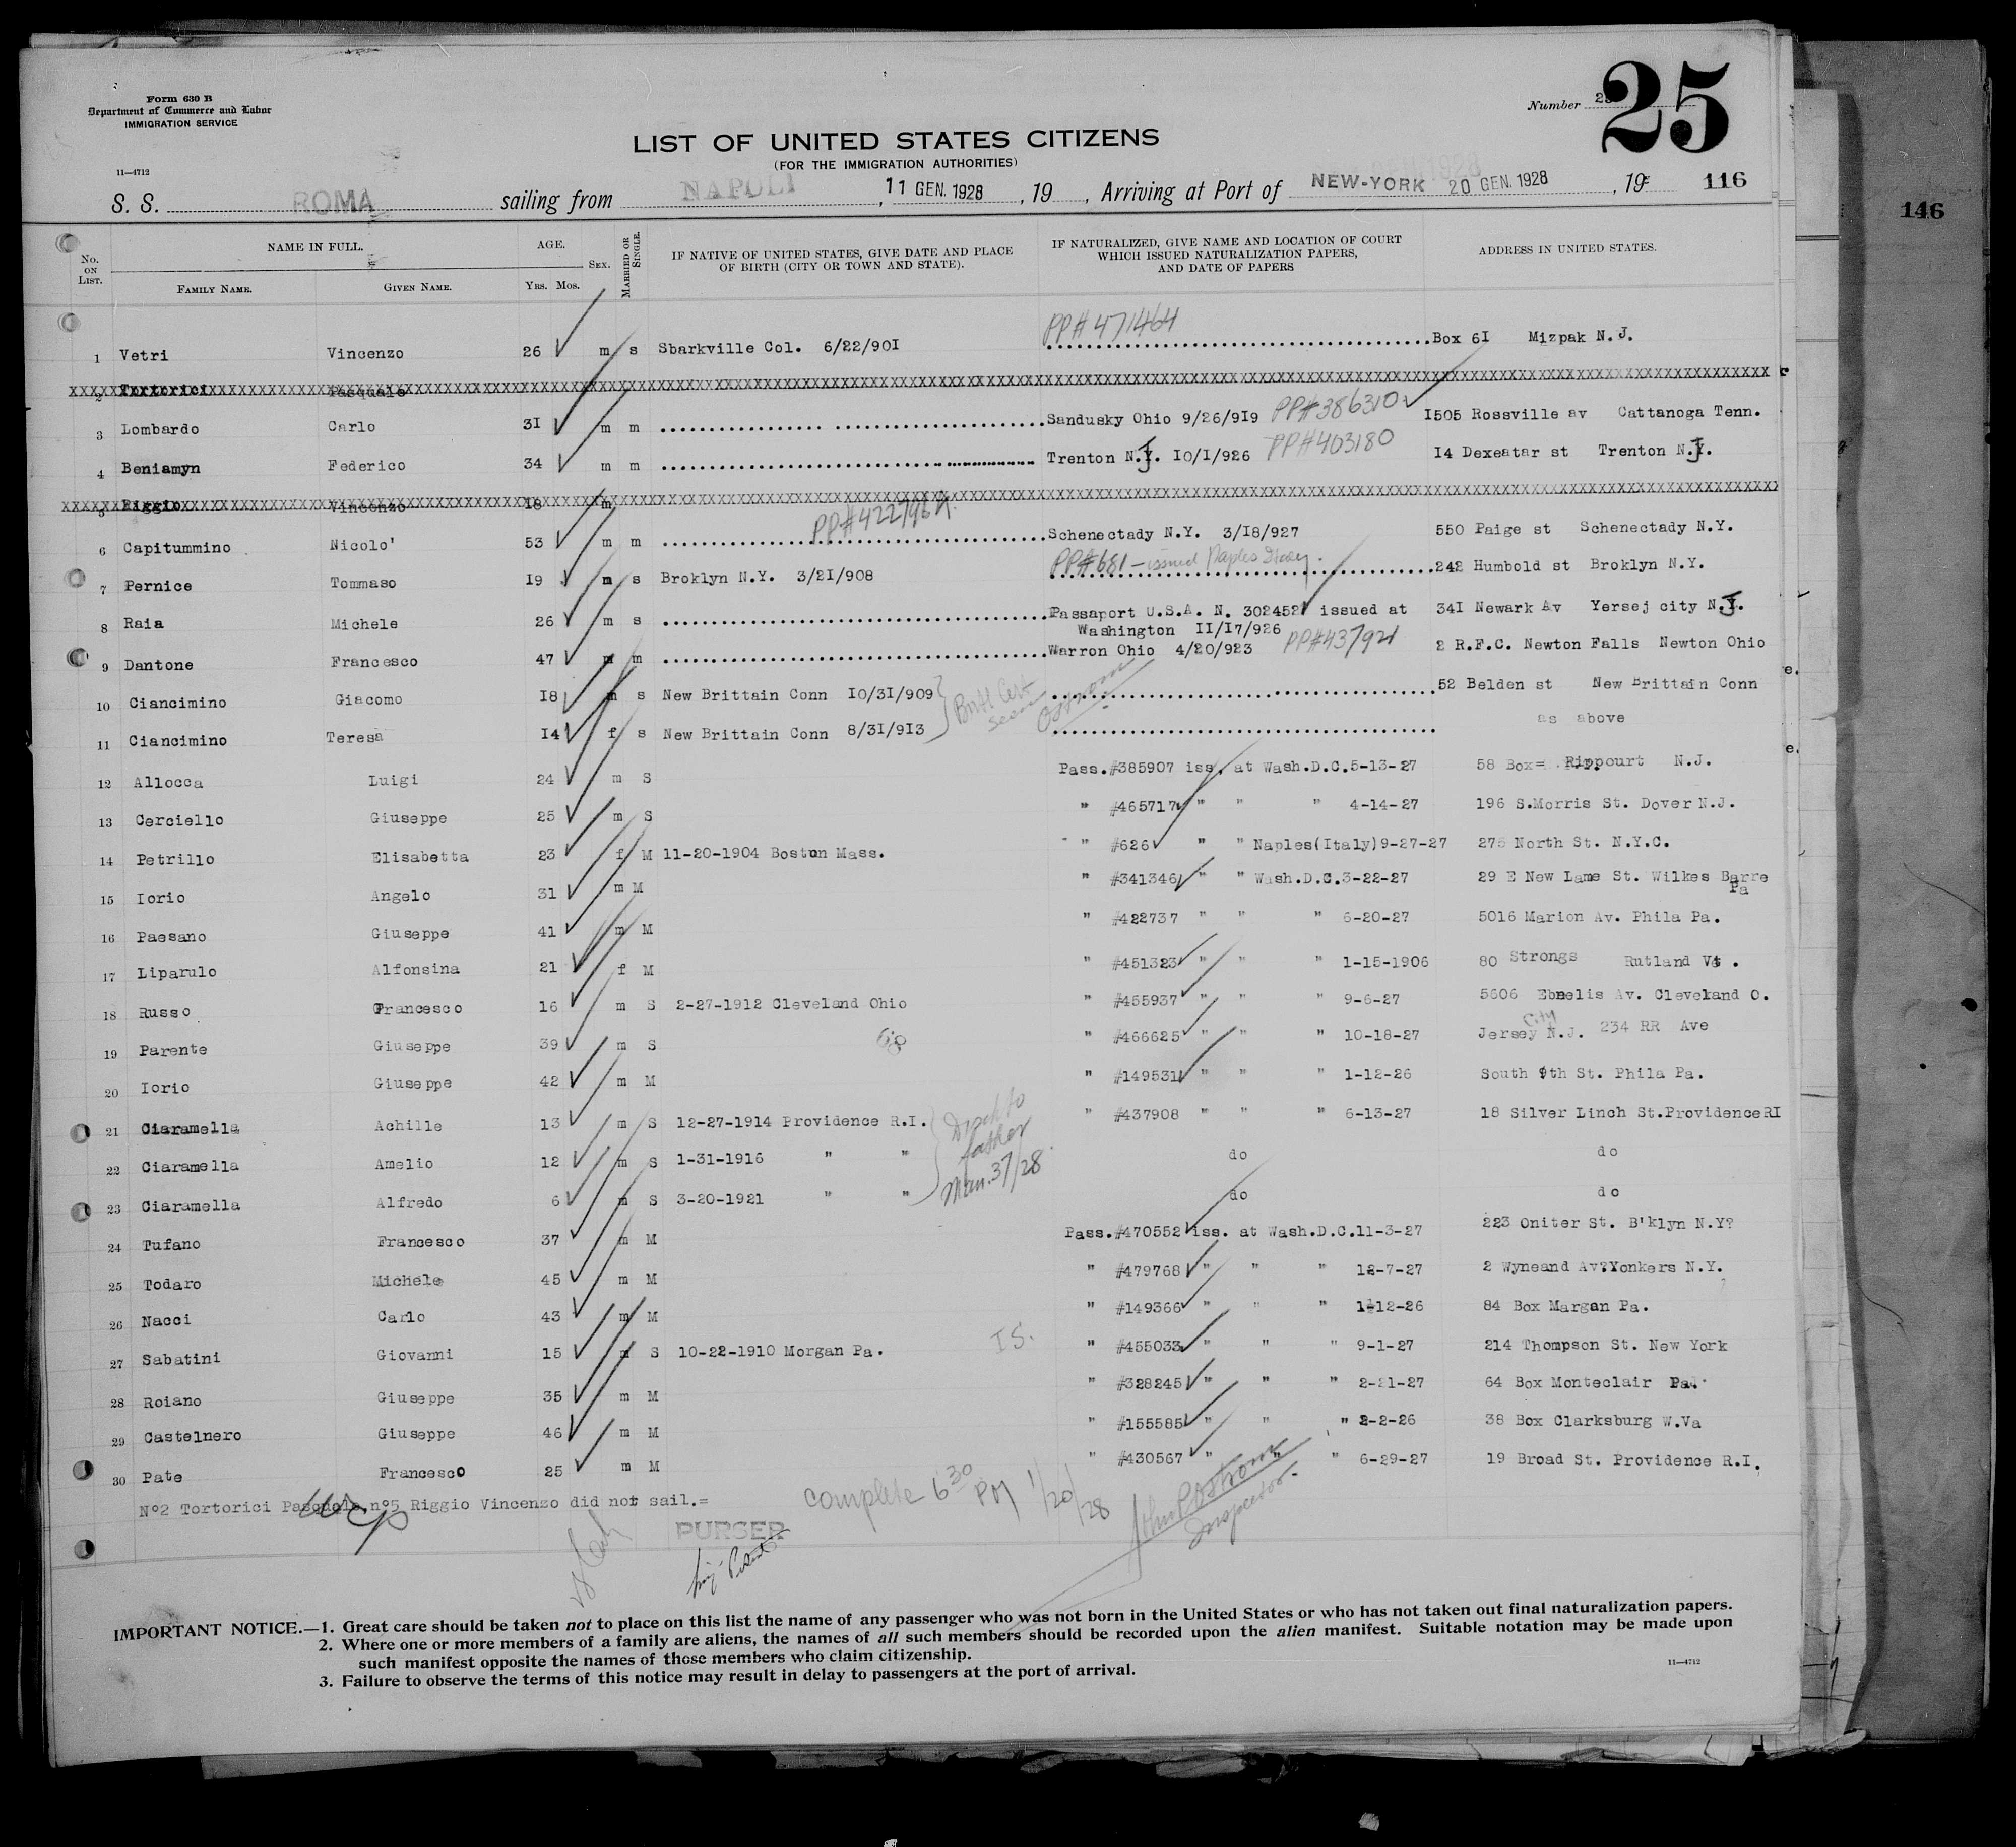 Form 630 B
Department of Commerce and Labor
IMMIGRATION SERVICE
Number 25
25
LIST OF UNITED STATES CITIZENS
(FOR THE IMMIGRATION AUTHORITIES)
11—4712
S. S. ROMA sailing from NAPOLI, 11 GEN. 1928, 19 , Arriving at Port of NEW-YORK 20 GEN. 1928, 19 116
146
No. ON LIST. NAME IN FULL. FAMILY NAME. GIVEN NAME. AGE. YRS. MOS. SEX. MARRIED OR SINGLE. IF NATIVE OF UNITED STATES, GIVE DATE AND PLACE OF BIRTH (CITY OR TOWN AND STATE). IF NATURALIZED, GIVE NAME AND LOCATION OF COURT WHICH ISSUED NATURALIZATION PAPERS, AND DATE OF PAPERS ADDRESS IN UNITED STATES.
PP# 471464
1 Vetri Vincenzo 26 m s Sbarkville Col. 6/22/90I Box 6I Mizpak N.J.
2 Tortorici Pasquale
3 Lombardo Carlo 3I m m Sandusky Ohio 9/26/9I9 PP#386310 I505 Rossville av Cattanoga Tenn.
4 Beniamyn Federico 34 m m Trenton N.J. IO/I/926 PP#403180 I4 Dexeatar st Trenton N.J.
5 Riggio Vincenzo I8 m
PP#422796
6 Capitummino Nicolo' 53 m m Schenectady N.Y. 3/I8/927 550 Paige st Schenectady N.Y.
PP#681 - issued Naples Italy.
7 Pernice Tommaso I9 m s Broklyn N.Y. 3/2I/908 242 Humbold st Broklyn N.Y.
8 Raia Michele 26 m s Passaport U.S.A. N. 302452 issued at 34I Newark Av Yersej city N.J.
Washington II/I7/926
9 Dantone Francesco 47 m m Warron Ohio 4/20/923 PP#437921 2 R.F.C. Newton Falls Newton Ohio
10 Ciancimino Giacomo I8 m s New Brittain Conn IO/3I/909 Birth Cert seen Ostrom 52 Belden st New Brittain Conn
11 Ciancimino Teresa I4 f s New Brittain Conn 8/3I/9I3 as above
12 Allocca Luigi 24 m S Pass.#385907 iss. at Wash.D.C.5-13-27 58 Box= Rippourt N.J.
13 Cerciello Giuseppe 25 m S " #465717 " " " 4-14-27 196 S.Morris St. Dover N.J.
14 Petrillo Elisabetta 23 f M 11-20-1904 Boston Mass. " #626 " " Naples(Italy)9-27-27 275 North St. N.Y.C.
15 Iorio Angelo 31 m M " #341346 " " Wash.D.C.3-22-27 29 E New Lame St. Wilkes Barre
Pa
16 Paesano Giuseppe 41 m M " #422737 " " " 6-20-27 5016 Marion Av. Phila Pa.
17 Liparulo Alfonsina 21 f M " #451323 " " " 1-15-1906 80 Strongs Rutland Vt.
18 Russo Francesco 16 m S 2-27-1912 Cleveland Ohio " #455937 " " " 9-6-27 5606 Ebnelis Av. Cleveland O.
19 Parente Giuseppe 39 m S " #466625 " " " 10-18-27 Jersey City N.J. 234 RR Ave
20 Iorio Giuseppe 42 m M " #149531 " " " 1-12-26 South 9th St. Phila Pa.
21 Ciaramella Achille 13 m S 12-27-1914 Providence R.I. " #437908 " " " 6-13-27 18 Silver Linch St.Providence RI
22 Ciaramella Amelio 12 m S 1-31-1916 " " do do
23 Ciaramella Alfredo 6 m S 3-20-1921 " " do do
Disch to
father
24 Tufano Francesco 37 m M Pass.#470552 iss. at Wash.D.C.11-3-27 223 Oniter St. B'klyn N.Y?
25 Todaro Michele 45 m M " #479768 " " " 12-7-27 2 Wyneand Av?Yonkers N.Y.
26 Nacci Carlo 43 m M " #149366 " " " 1-12-26 84 Box Margan Pa.
27 Sabatini Giovanni 15 m S 10-22-1910 Morgan Pa. I S. " #455033 " " " 9-1-27 214 Thompson St. New York
28 Roiano Giuseppe 35 m M " #328245 " " " 2-21-27 64 Box Monteclair Pa.
29 Castelnero Giuseppe 46 m M " #155585 " " " 2-2-26 38 Box Clarksburg W.Va
30 Pate Francesco 25 m M " #430567 " " " 6-29-27 19 Broad St. Providence R.I.
Nº2 Tortorici Pasquale nº5 Riggio Vincenzo did not sail.=
complete 6 30 PM 1/20/28
Ostrom
Inspector.
PURSER
IMPORTANT NOTICE.—1. Great care should be taken not to place on this list the name of any passenger who was not born in the United States or who has not taken out final naturalization papers.
2. Where one or more members of a family are aliens, the names of all such members should be recorded upon the alien manifest. Suitable notation may be made upon
such manifest opposite the names of those members who claim citizenship.
3. Failure to observe the terms of this notice may result in delay to passengers at the port of arrival.
11—4712